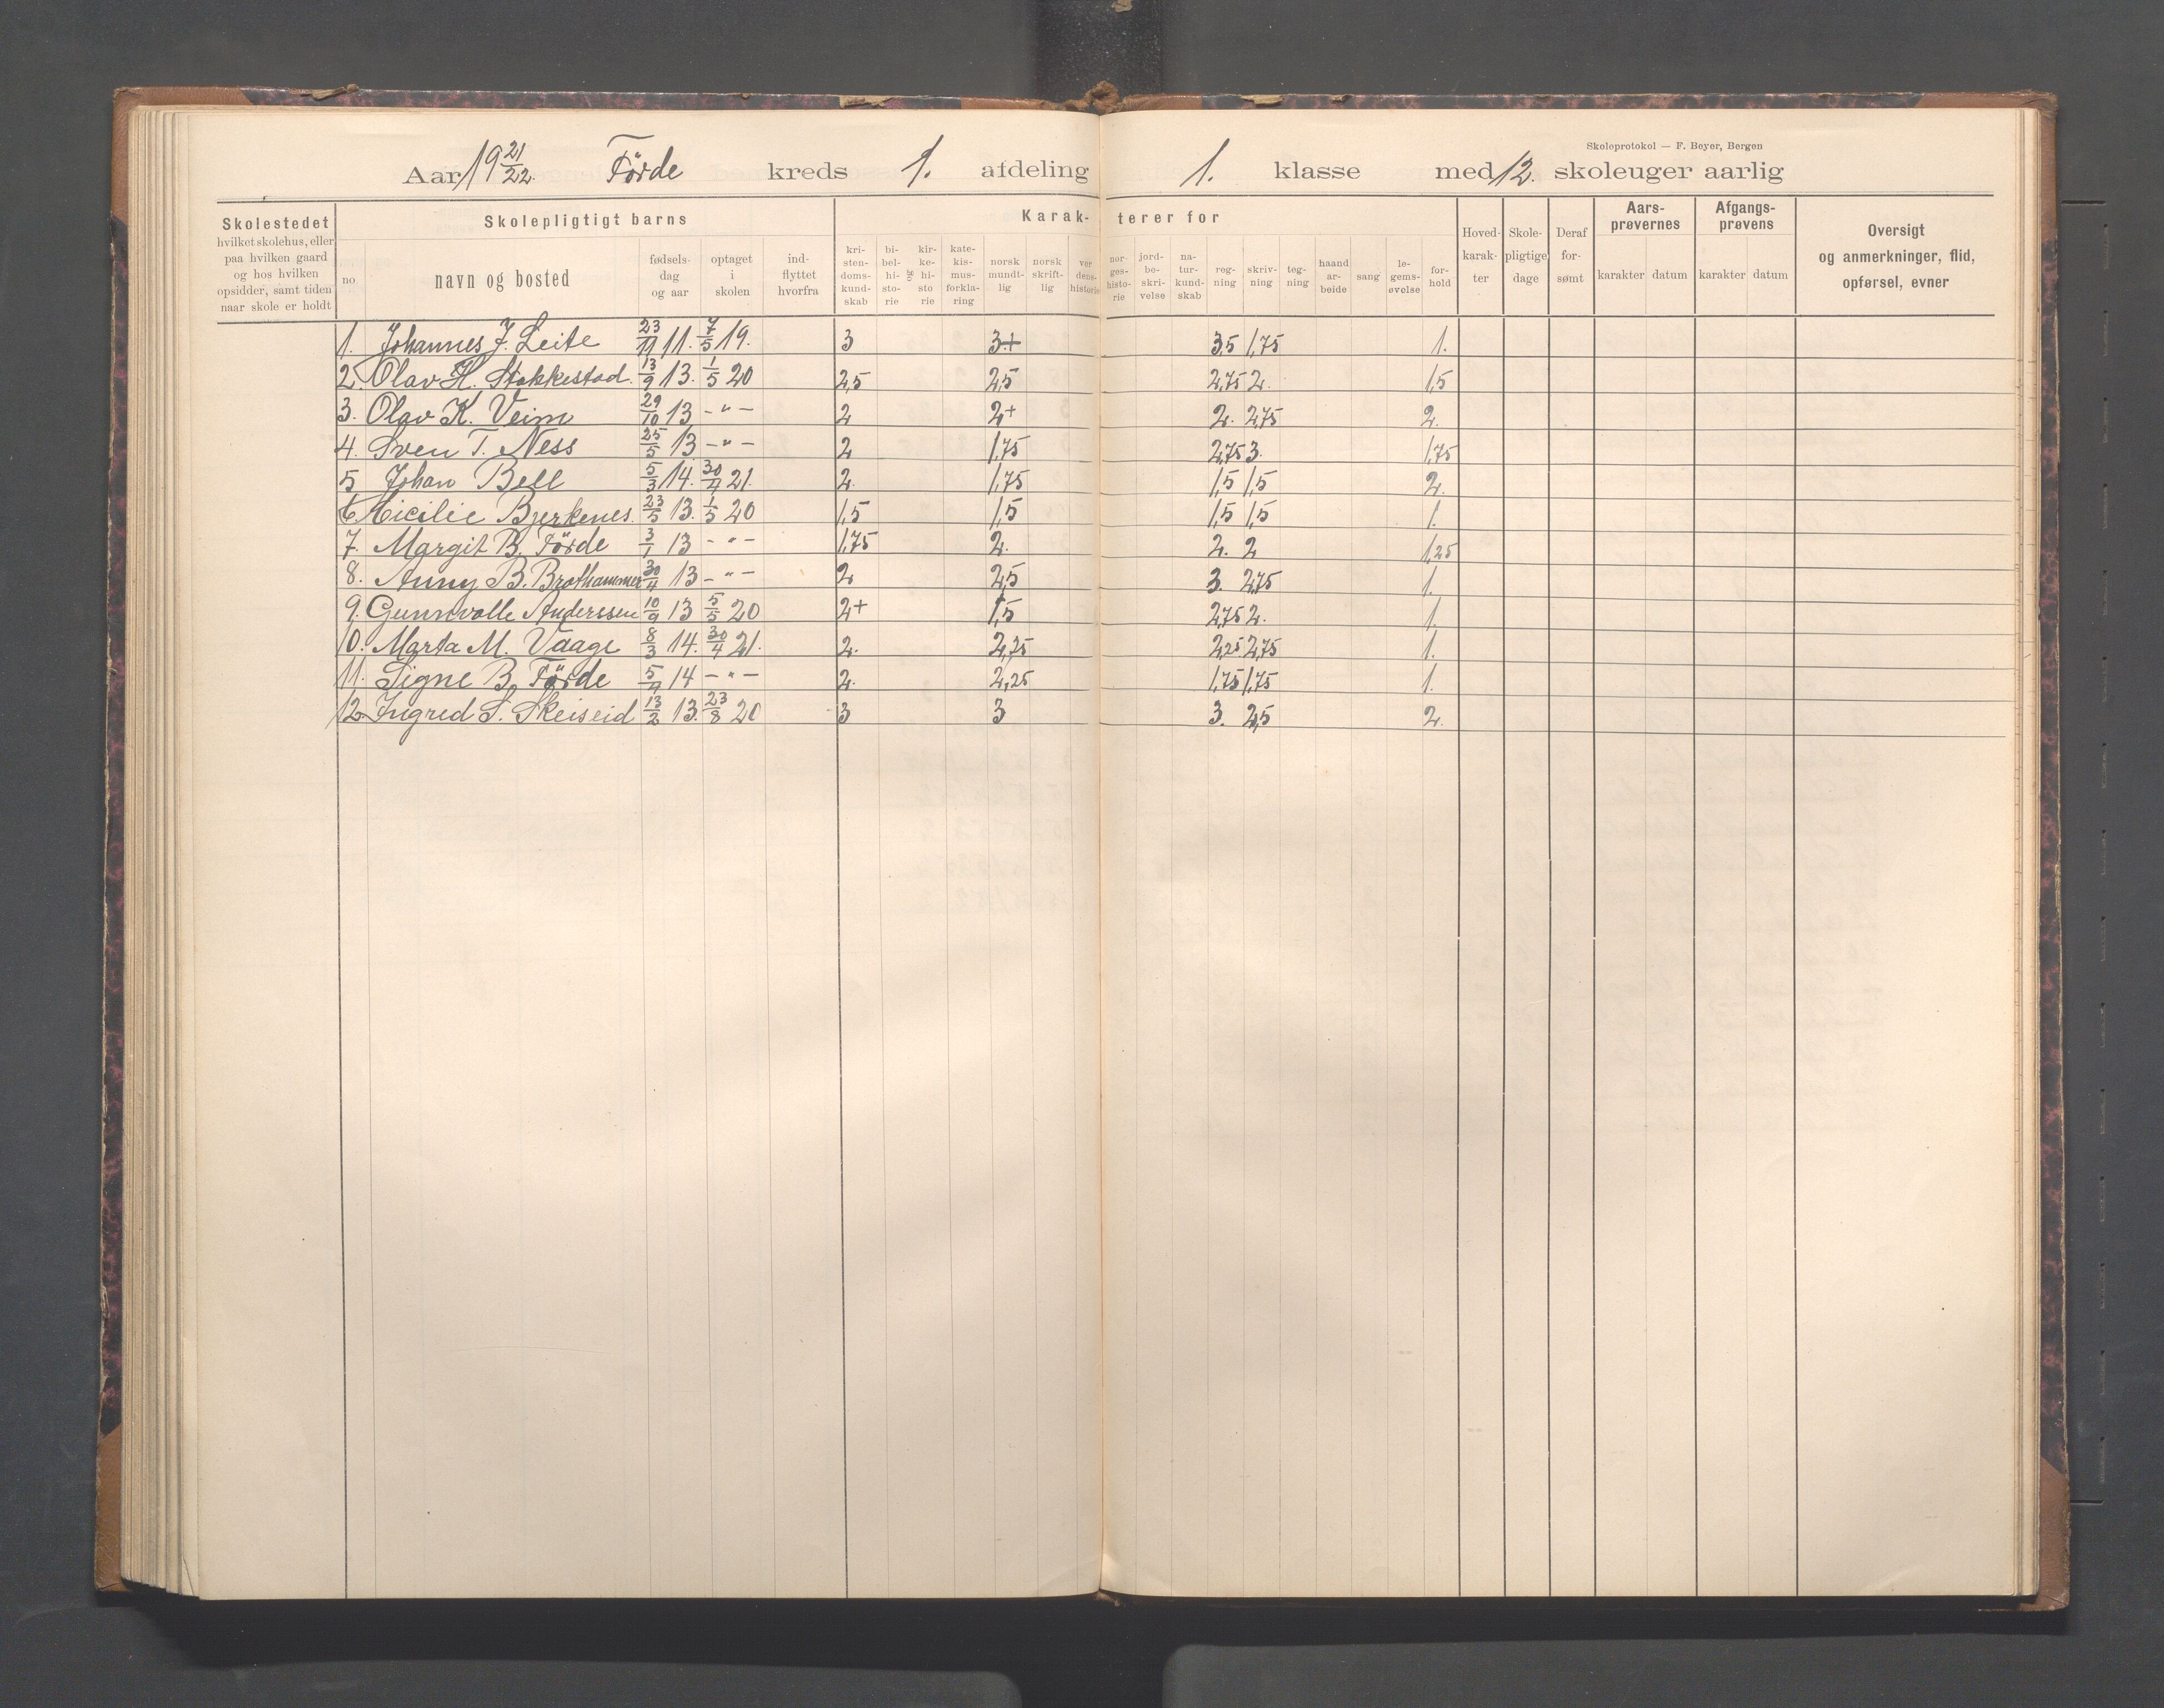 Skoleprotokol — F. Beyer, Bergen
Aar 19 21/22. Förde kreds 1. afdeling 1. klasse med 12. skoleuger aarlig
Skolestedet hvilket skolehus, eller paa hvilken gaard og hos hvilken opsidder, samt tiden naar skole er holdt
Skolepligtigt barns
no navn og bosted fødsels-dag og aar optaget i skolen ind-flyttet hvorfra
Karak-terer for
kri-sten-doms-kund-skab bi-bel-hi-sto-rie og kir-ke-hi-sto rie kate-kis-mus-forkla-ring norsk mundt-lig norsk skrift-lig ver dens-historie nor-ges-histo-rie jord-be-skri-velse na-tur-kund-skab reg-ning skriv-ning teg-ning haand ar-beide sang le-gems-øvelse for-hold
Hoved-karak-ter Skole-pligtige dage Deraf for-sømt
Aars-prøvernes karakter datum
Afgangs-prøvens karakter datum
Oversigt og anmerkninger, flid, opførsel, evner
1. Johannes J. Leite 23/11 11. 7/5 19. 3 3+ 3,5 1,75 1.
2. Olav H. Stokkestad. 13/9 13. 1/5 20 2,5 2,5 2,75 2. 1,5
3. Olav K. Veim 29/10 13 -"- 2 2+ 2. 2,75 2.
4. Sven T. Ness 25/5 13 -"- 2 1,75 2,75 3. 1,75
5 Johan Bell 5/3 14. 30/4 21. 2. 1,75 1,5 1,5 2.
6 Cicilie Bjerkenes. 23/5 13. 1/5 20 1,5 1,5 1,5 1,5 1.
7. Margit B. Förde 3/1 13 -"- 1,75 2. 2. 2 1,25
8. Anny B. Brothammer 30/4 13 -"- 2 2,5 3. 2,75 1.
9. Gunnvalle Anderssen 10/9 13 5/5 20 2+ 1,5 2,75 2. 1.
10. Marta M. Vaage 8/3 14. 30/4 21. 2. 2,25 2,25 2,75 1.
11. Signe B. Förde 5/4 14 -"- 2. 2,25 1,75 1,75 1.
12. Ingred S. Skeiseid 13/2 13. 23/8 20 3 3 3. 2,5 2.